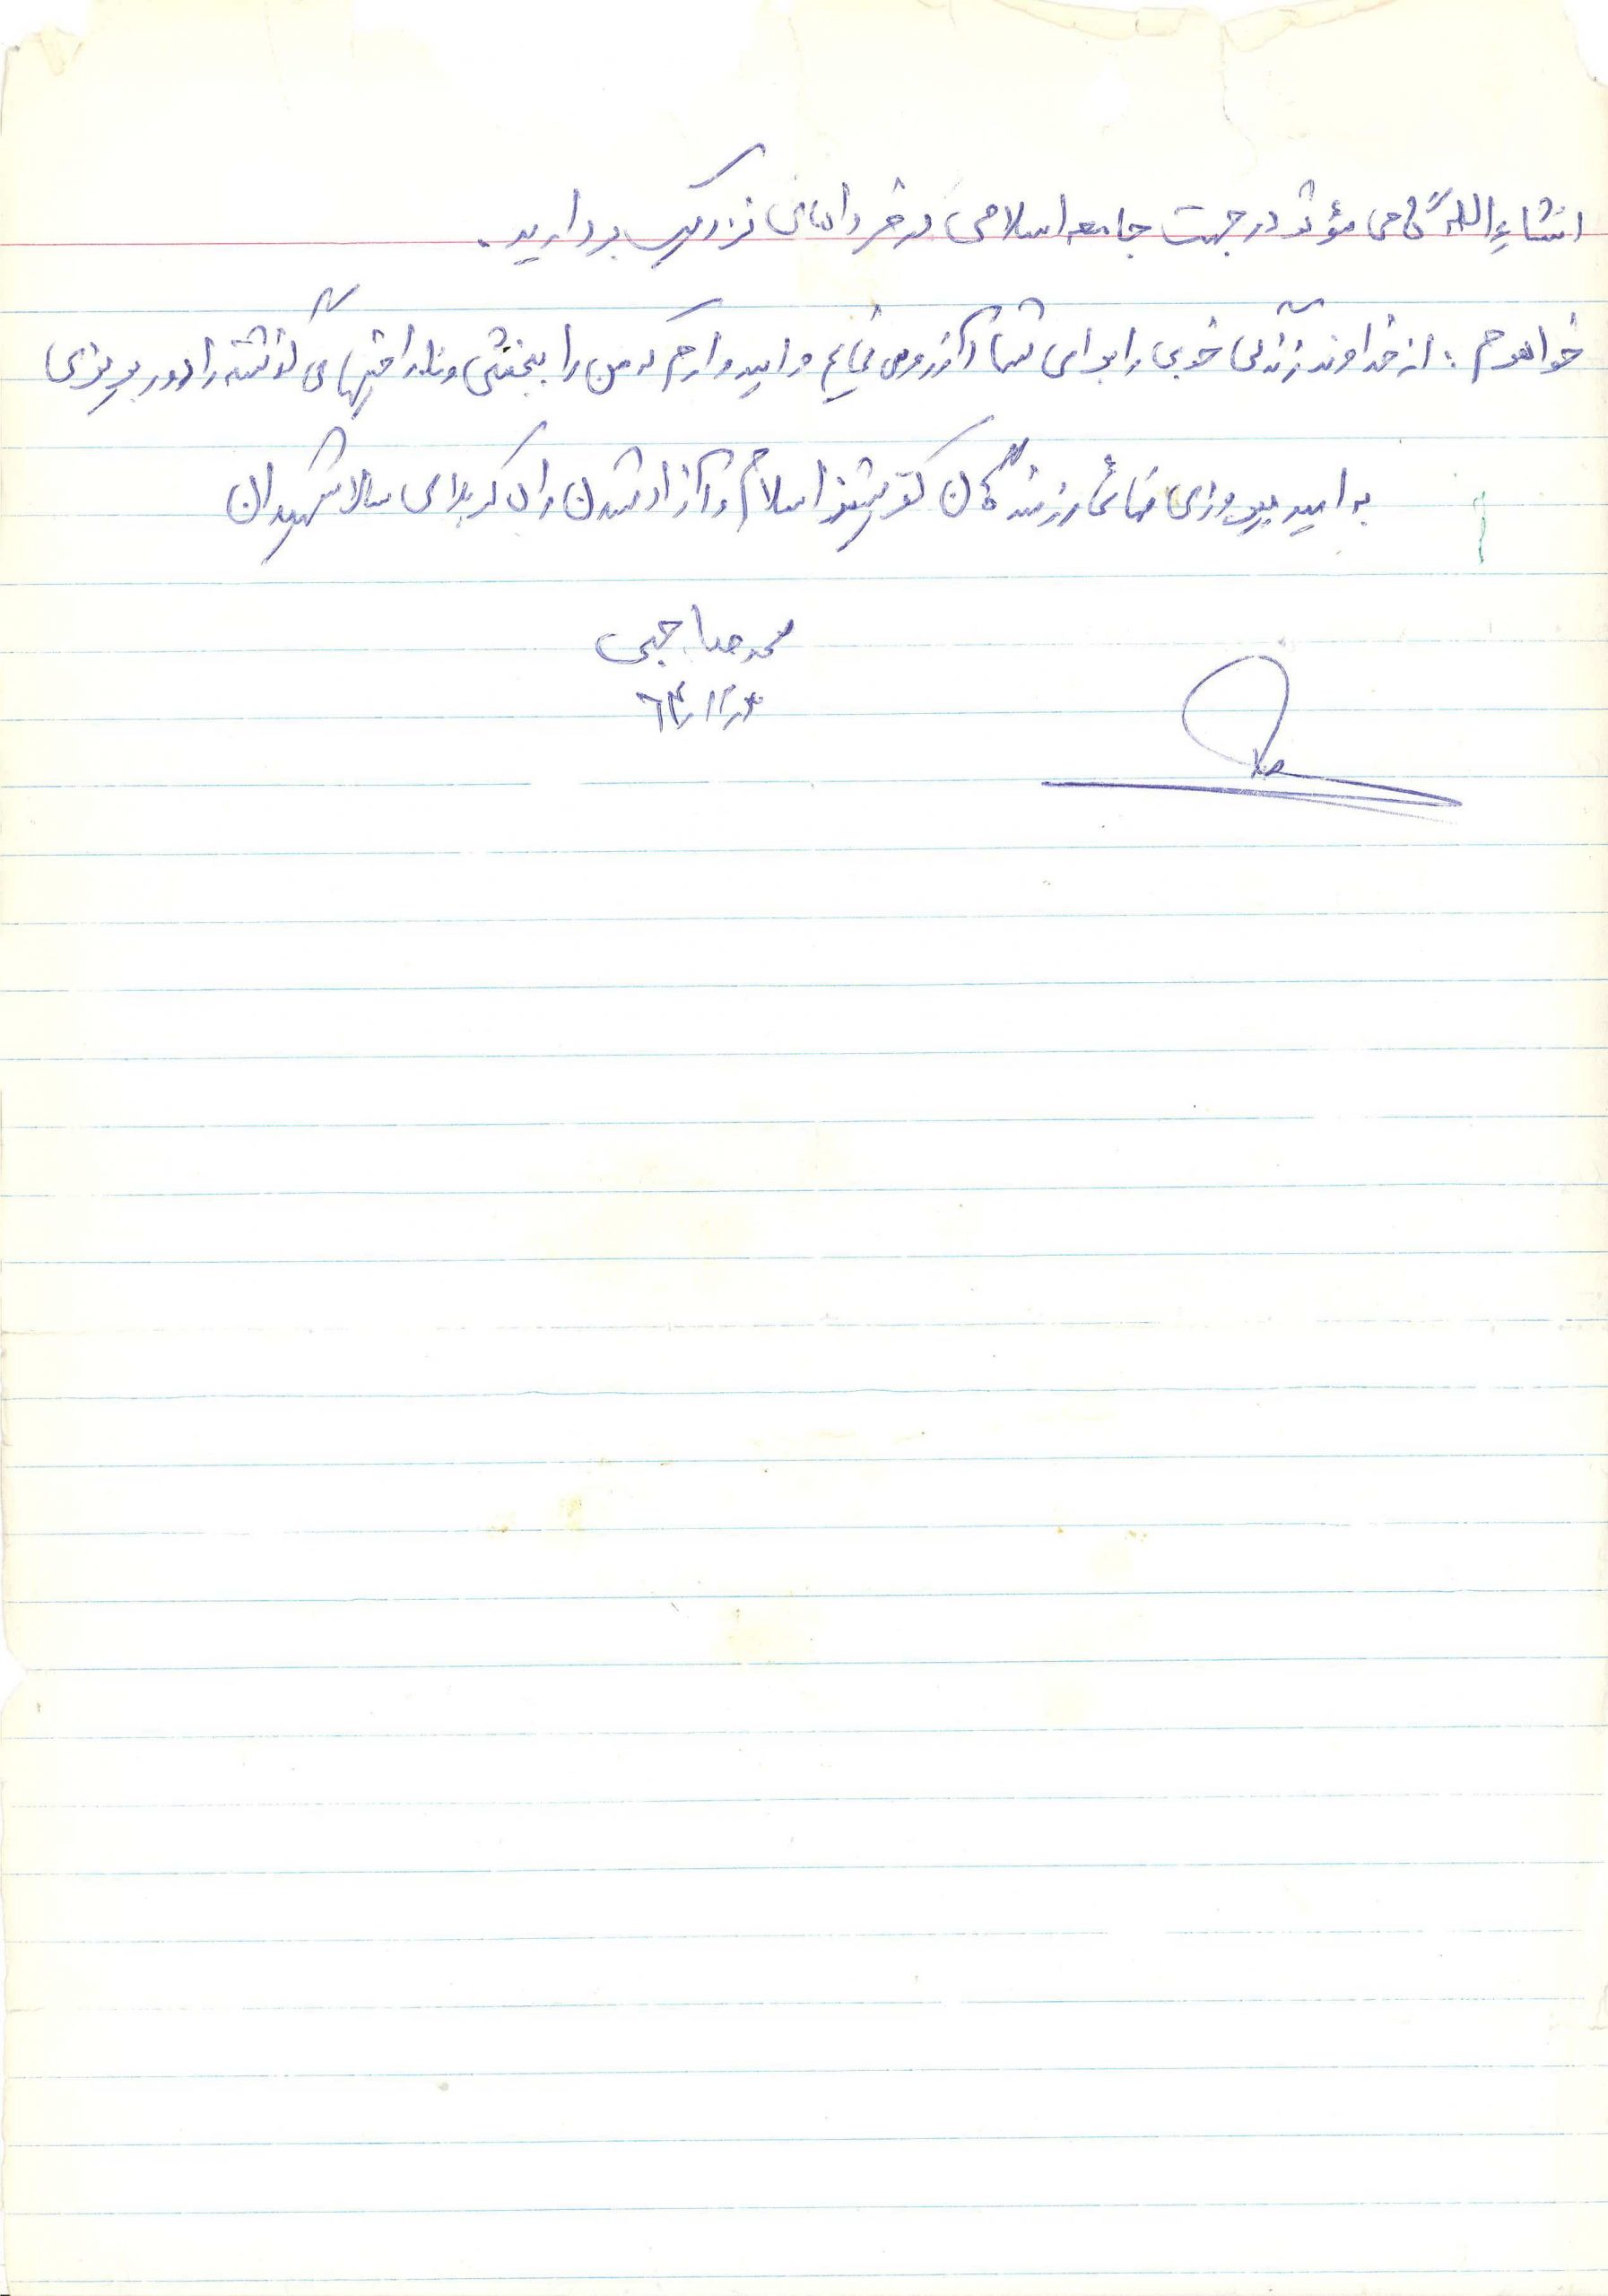 انشاءالله گامی مؤثر در جهت جامعه اسلامی در فرداهای نزدیک بردارید.
خواهرم: از خداوند زندگی خوبی را برای شما آرزو می نمایم و امیدوارم که من را ببخشی و ناراحتیهای گذشته را دور بریزی
به امید پیروزی نهائی رزمندگان کفرستیز اسلام و آزاد شدن راه کربلای سالار شهیدان
محمد صاحبی